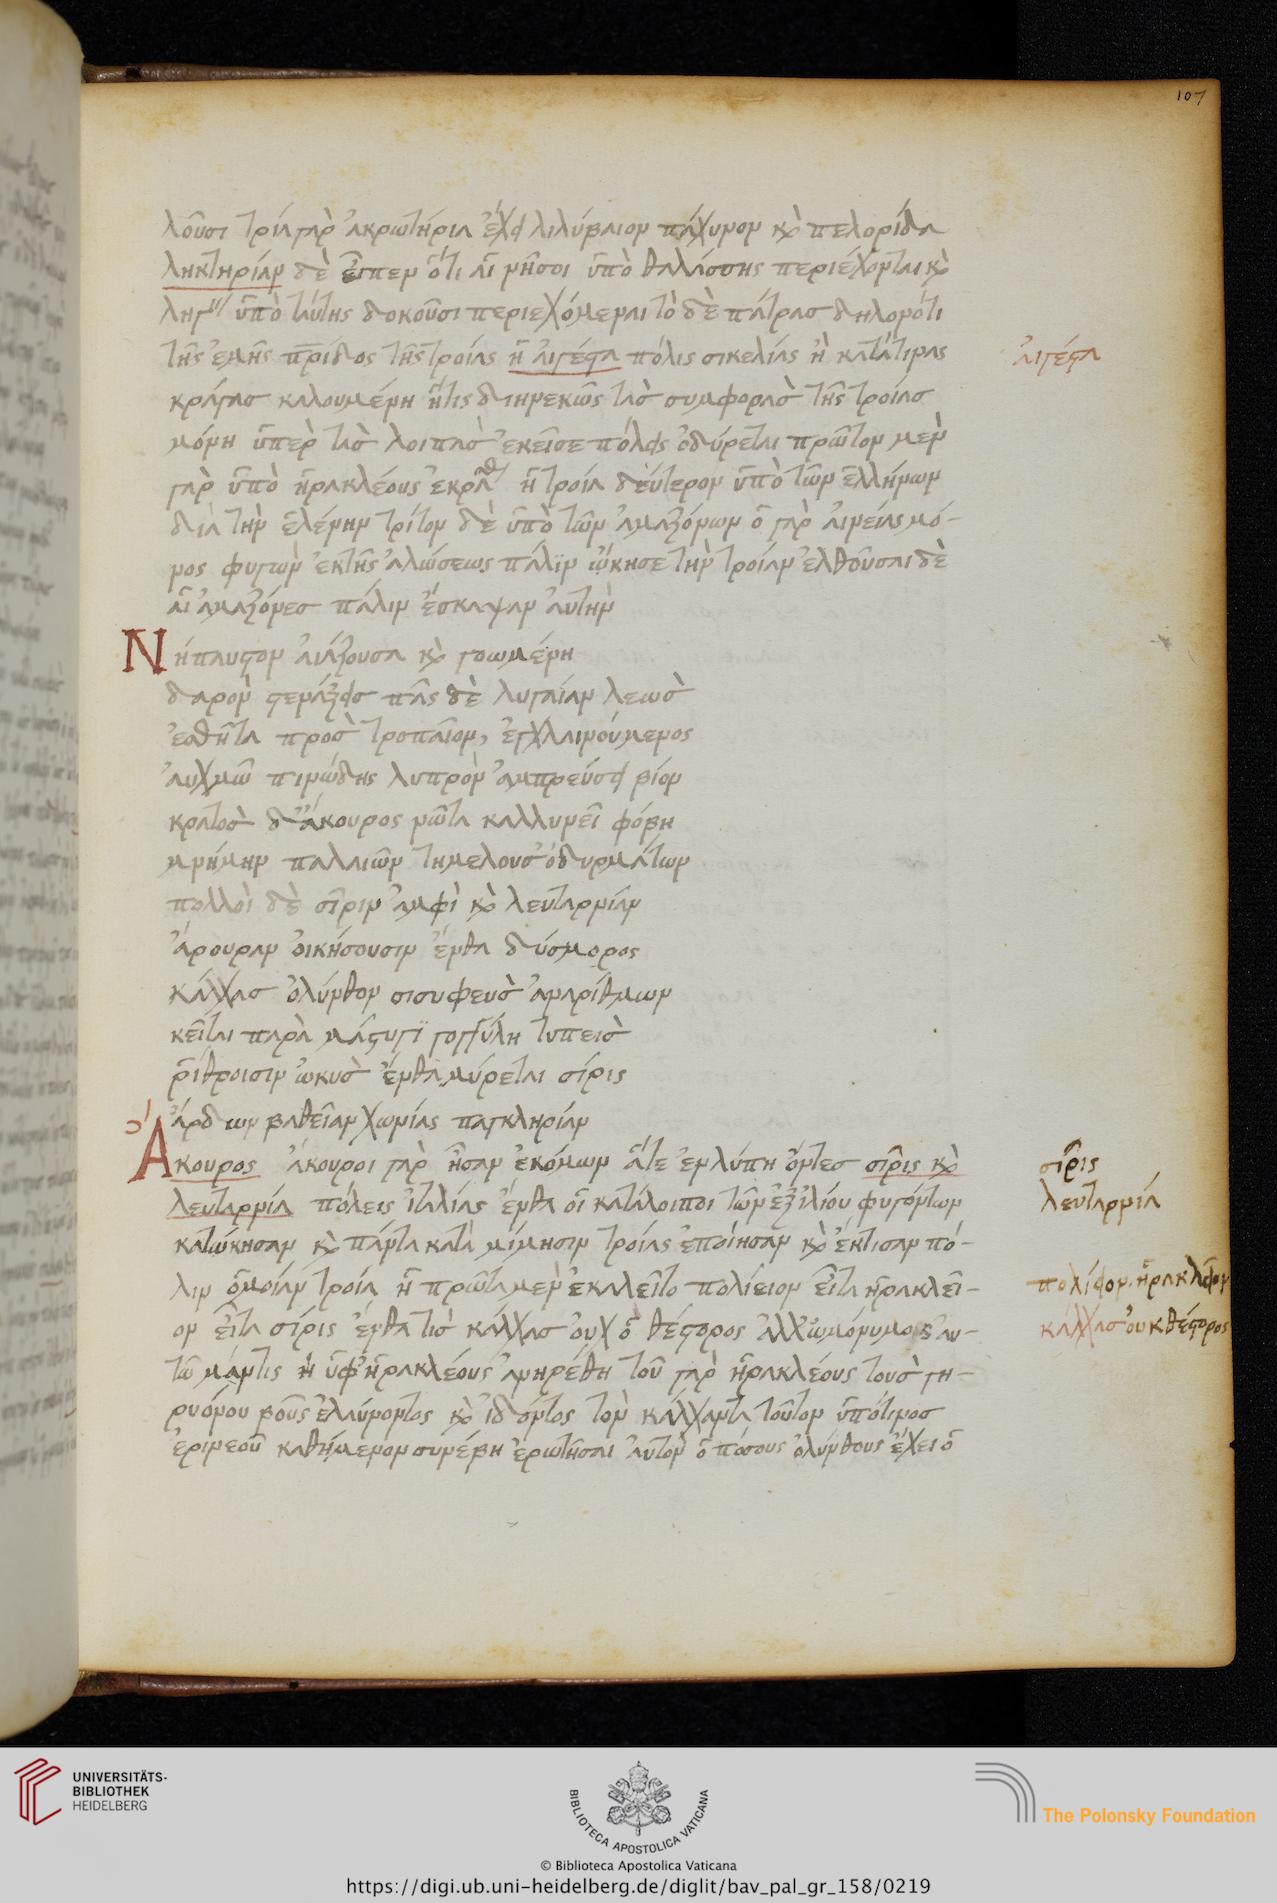 107
λοῦσι τρία γὰρ ἀκρωτήρια ἔχει λιλύβαιον πάχυνον καὶ πελορίδα
ληκτηρίαν δὲ εἶπεν ὅτι αἱ νῆσοι ὑπὸ θαλάσσης περιέχονται καὶ
ὑπὸ ταύτης δοκοῦσι περιεχόμεναι τὸ δὲ πάτρας δηλονότι
τῆς ἐμῆς πρίδος τῆς τροίας ἡ αἰγέστα πόλις σικελίας ἡ κατά τινας
κράγας καλουμένη ἥτις διηνεκῶς τὰς συμφορὰς τῆς τροίας
μόνη ὑπὲρ τὰς λοιπὰς ἐκεῖσε πόλεις ὀδύρεται πρῶτον μὲν
γὰρ ὑπὸ ἡρακλέους ἡ τροία δεύτερον ὑπὸ τῶν ἑλλήνων
διὰ τὴν ἑλένην τρίτον δὲ ὑπὸ τῶν ἀμαζόνων ὁ γὰρ αἰνείας μό-
νος φυγὼν ἐκ τῆς ἁλώσεως πάλϊν ᾤκησε τὴν τροίαν ἐλθοῦσαι δὲ
αἱ ἀμαζόνες πάλιν ἔσκαψαν αὐτήν
Νήπαυστον αἰάζουσα καὶ γοωμένη
δαρὸν στενάζεις πᾶς δὲ λυγαίαν λεὼς
ἐσθῆτα προστρόπαιον, ἐγχλαινούμενος
αὐχμῶ πινώδης λυπρὸν ἀμπρεύσει βίον
κρατὸς δ' ἄκουρος νῶτα καλλυνεῖ φόβη
μνήμην παλαιῶν τημελοῦσ' ὀδυρμάτων
πολλοὶ δὲ σῖριν ἀμφὶ καὶ λευταρνίαν
ἄρουραν οἰκήσουσιν ἔνθα δύσμορος
κάλχας ὀλύνθον σισυφεὺς ἀναρίθμων
κεῖται παρὰ μάστυγϊ γογγύλη τυπεὶς
ῥίθροισιν ὠκὺς ἔνθα μύρεται σίρις
ἄρδων βαθεῖαν χωνίας παγκληρίαν
Ἄκουρος ἄκουροι γὰρ ἦσαν ἐκόμων ἅτε ἐν λύπη ὄντες σῖρις καὶ
λευταρνία πόλεις ἰταλίας ἔνθα οἱ κατάλοιποι τῶν ἐξ ἰλίου φυγόντων
κατώκησαν καὶ πάντα κατὰ μίμησιν τροίας ἐποίησαν καὶ ἔκτισαν πό-
λιν ὁμοίαν τροία ἣ πρῶτα μὲν ἐκαλεῖτο πολίειον εἶτα ἡρακλεῖ-
ον εἶτα σίρις ἔνθα τὶς κάλχας οὐχ ὁ θέστορος ἀλλ' ὁμώνυμος αὐ-
τῶ μάντις ἢ ὑφ' ἡρακλέους ἀνηρέθη τοῦ γὰρ ἡρακλέους τοὺς γη-
ρυόνου βοῦς ἐλαύνοντος καὶ ἰδόντος τὸν κάλχαντα τοῦτον ὑπό τινος
ἐρινεοῦ καθήμενον συνέβη ἐρωτῆσαι αὐτὸν ὁπόσους ὀλύνθους ἔχει ὁ
αἰγέστα
σῖρις
λευταρνία
πολίειον. ἡράκλειον
κάλχας οὐκ θέστορος
UNIVERSITÄTS-
BIBLIOTHEK
HEIDELBERG
BIBLIOTECA APOSTOLICA VATICANA
The Polonsky Foundation
© Biblioteca Apostolica Vaticana
https://digi.ub.uni-heidelberg.de/diglit/bav_pal_gr_158/0219